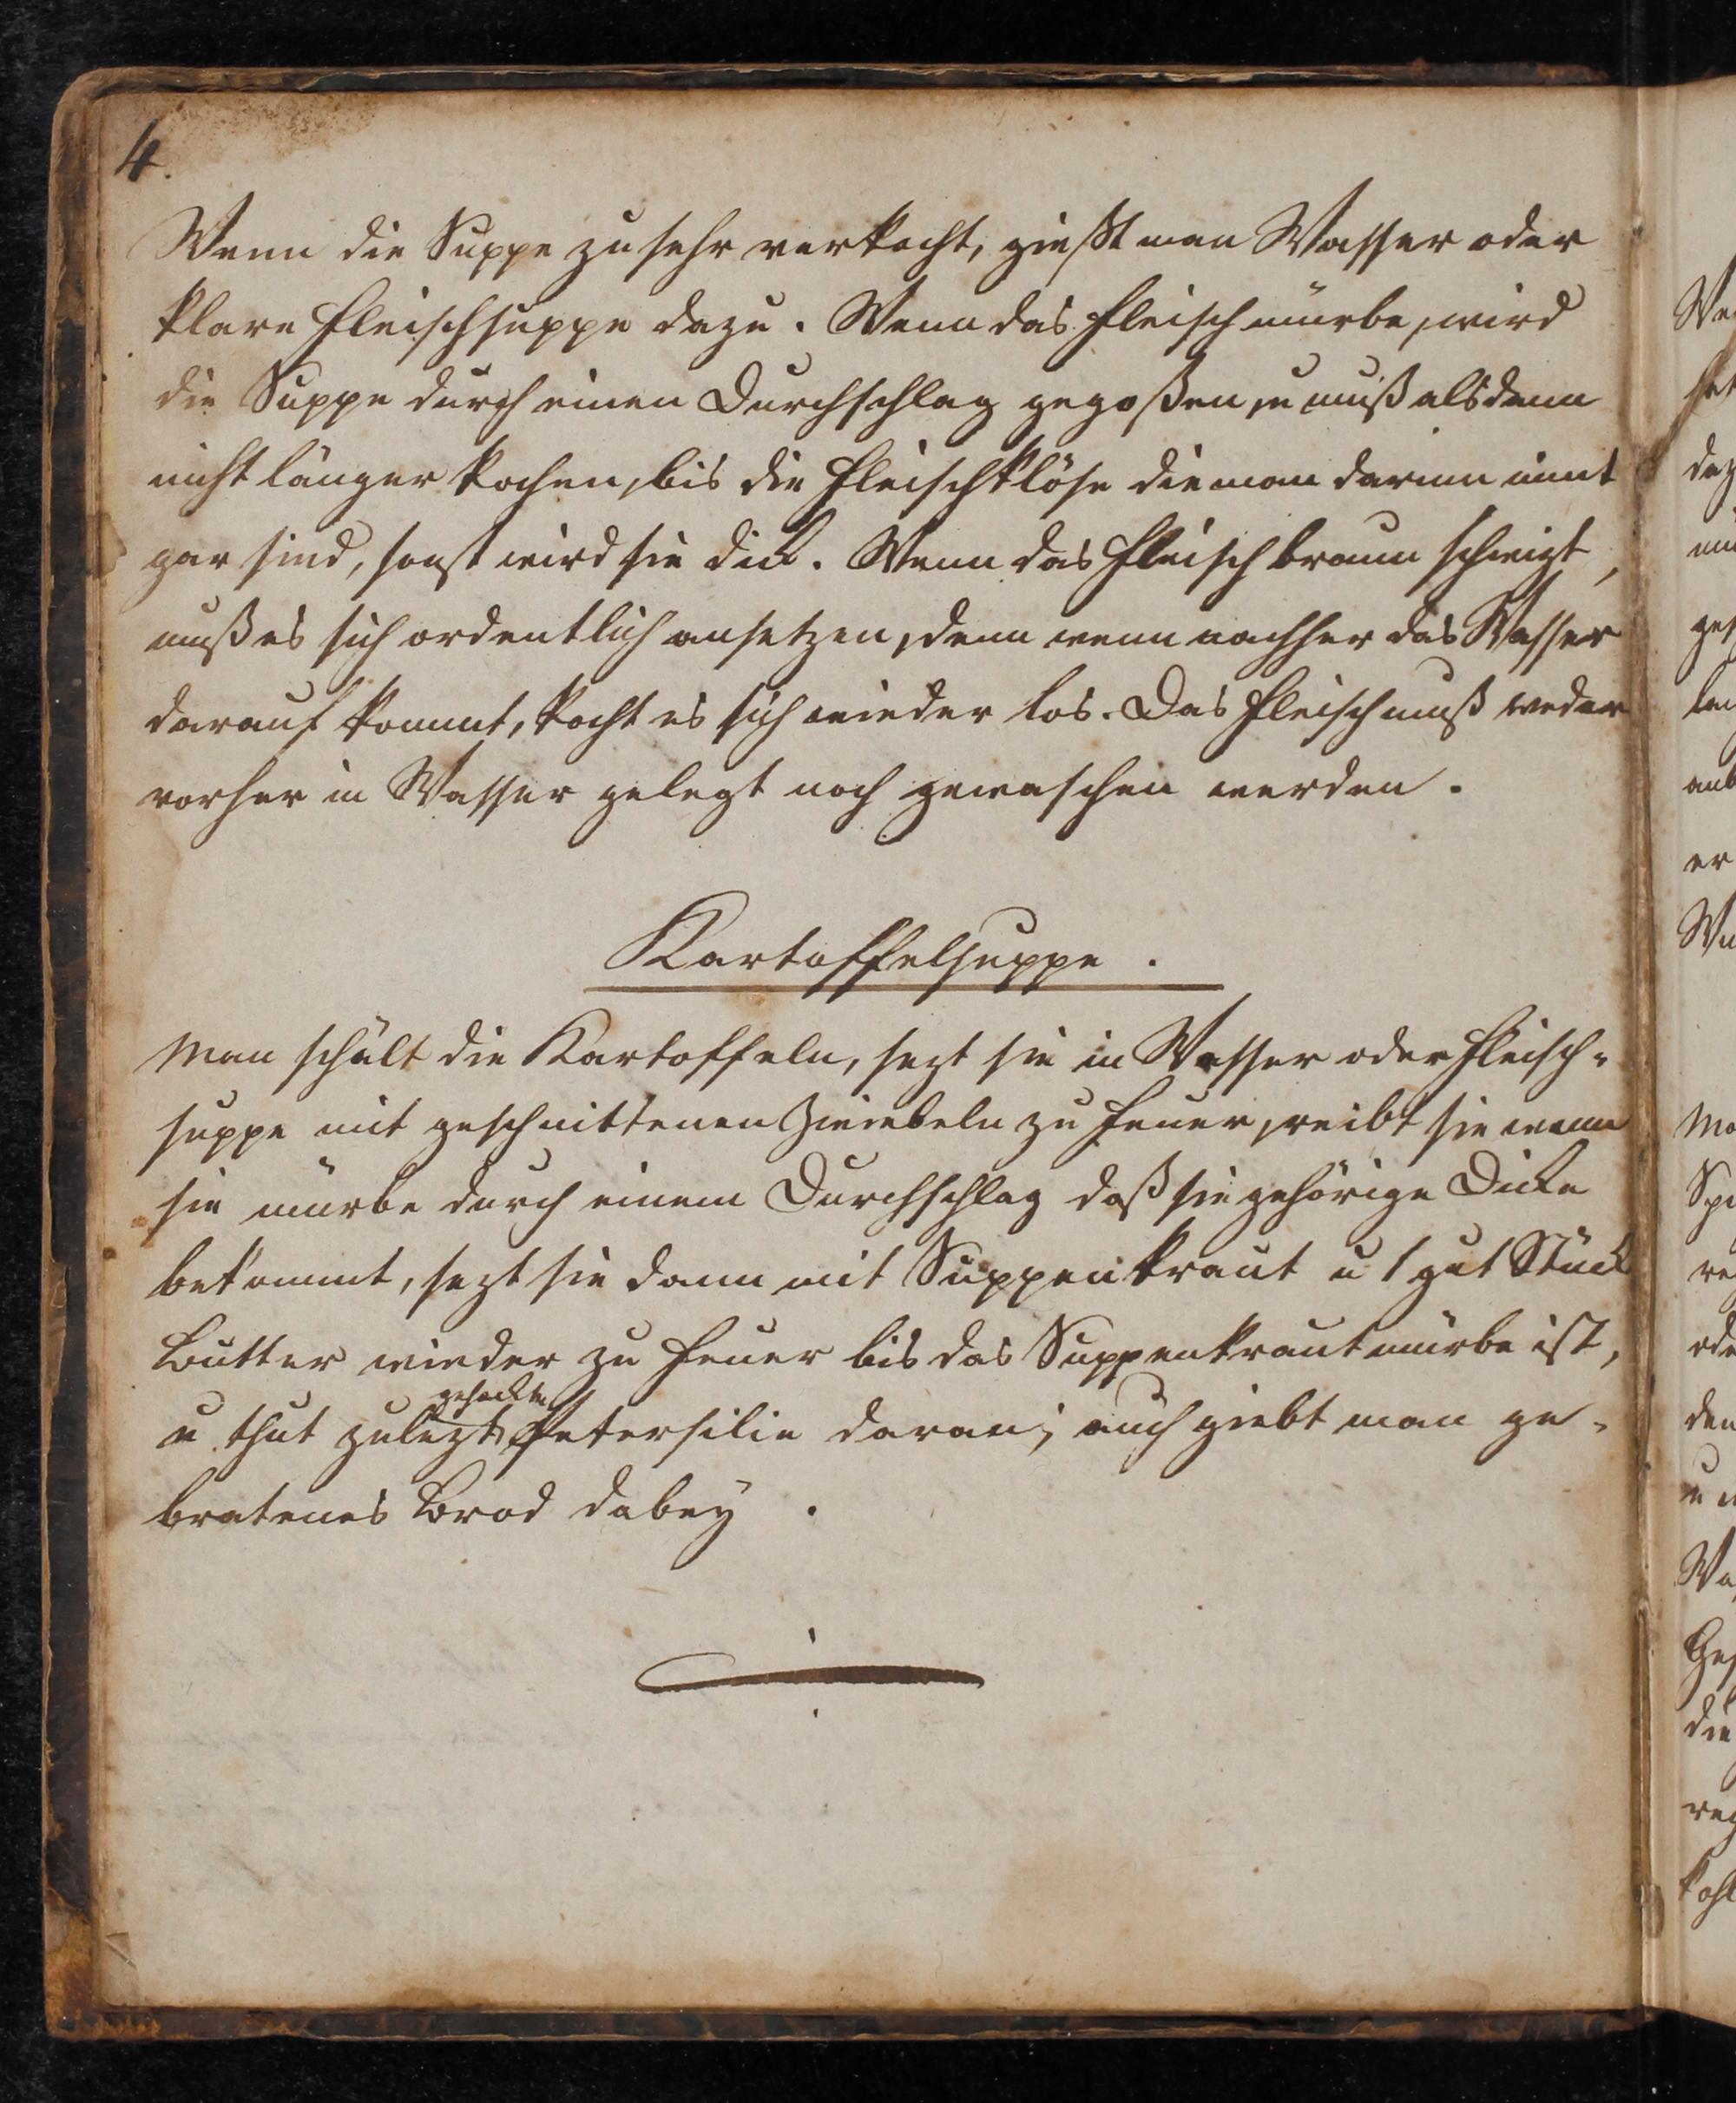 4.
Wenn die Suppe zu sehr verkocht, gießt man Wasser oder
klare Fleischsuppe dazu. Wenn das Fleisch mürbe, wird
die Suppe durch einen Durchschlag gegoßen, u muß alsdenn
nicht länger kochen, bis die Fleischklöse die man darinn
gar sind, sonst wird sie dick. Wenn das Fleisch braun schwizt,
muß es sich ordentlich ansetzen, denn wenn nachher das Wasser
darauf kommt, kocht es sich wieder los. Das Fleisch muß weder
vorher in Wasser gelegt noch gewaschen werden.
Kartoffelsuppe.
Man schält die Kartoffeln, sezt sie in Wasser oder Fleisch-
suppe mit geschnittenen Zwiebeln zu Feuer, reibt sie wenn
sie mürbe durch einem Durchschlag daß sie gehörige Dicke
bekommt, sezt sie dann mit Suppenkraut u 1 gut Stück
Butter wieder zu Feuer bis das Suppenkraut mürbe ist,
gehackte
u thut zulezt Petersilie daran; auch giebt man ge-
bratenes Brod dabey.